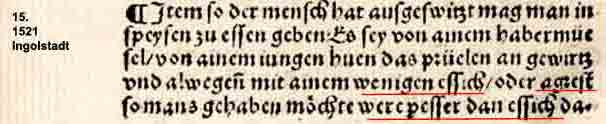 15.
1521
Ingolstadt
¶ Item so der mensch hat ausgeswitzt mag man in
speysen zu essen geben. Es sey von ainem habermue
sel/ von ainem iungen huen das prüelen an gewirtz
vnd alwegen mit ainem wenigen essich/ oder agrest
so mans gehaben möchte were pesser dan essich da-